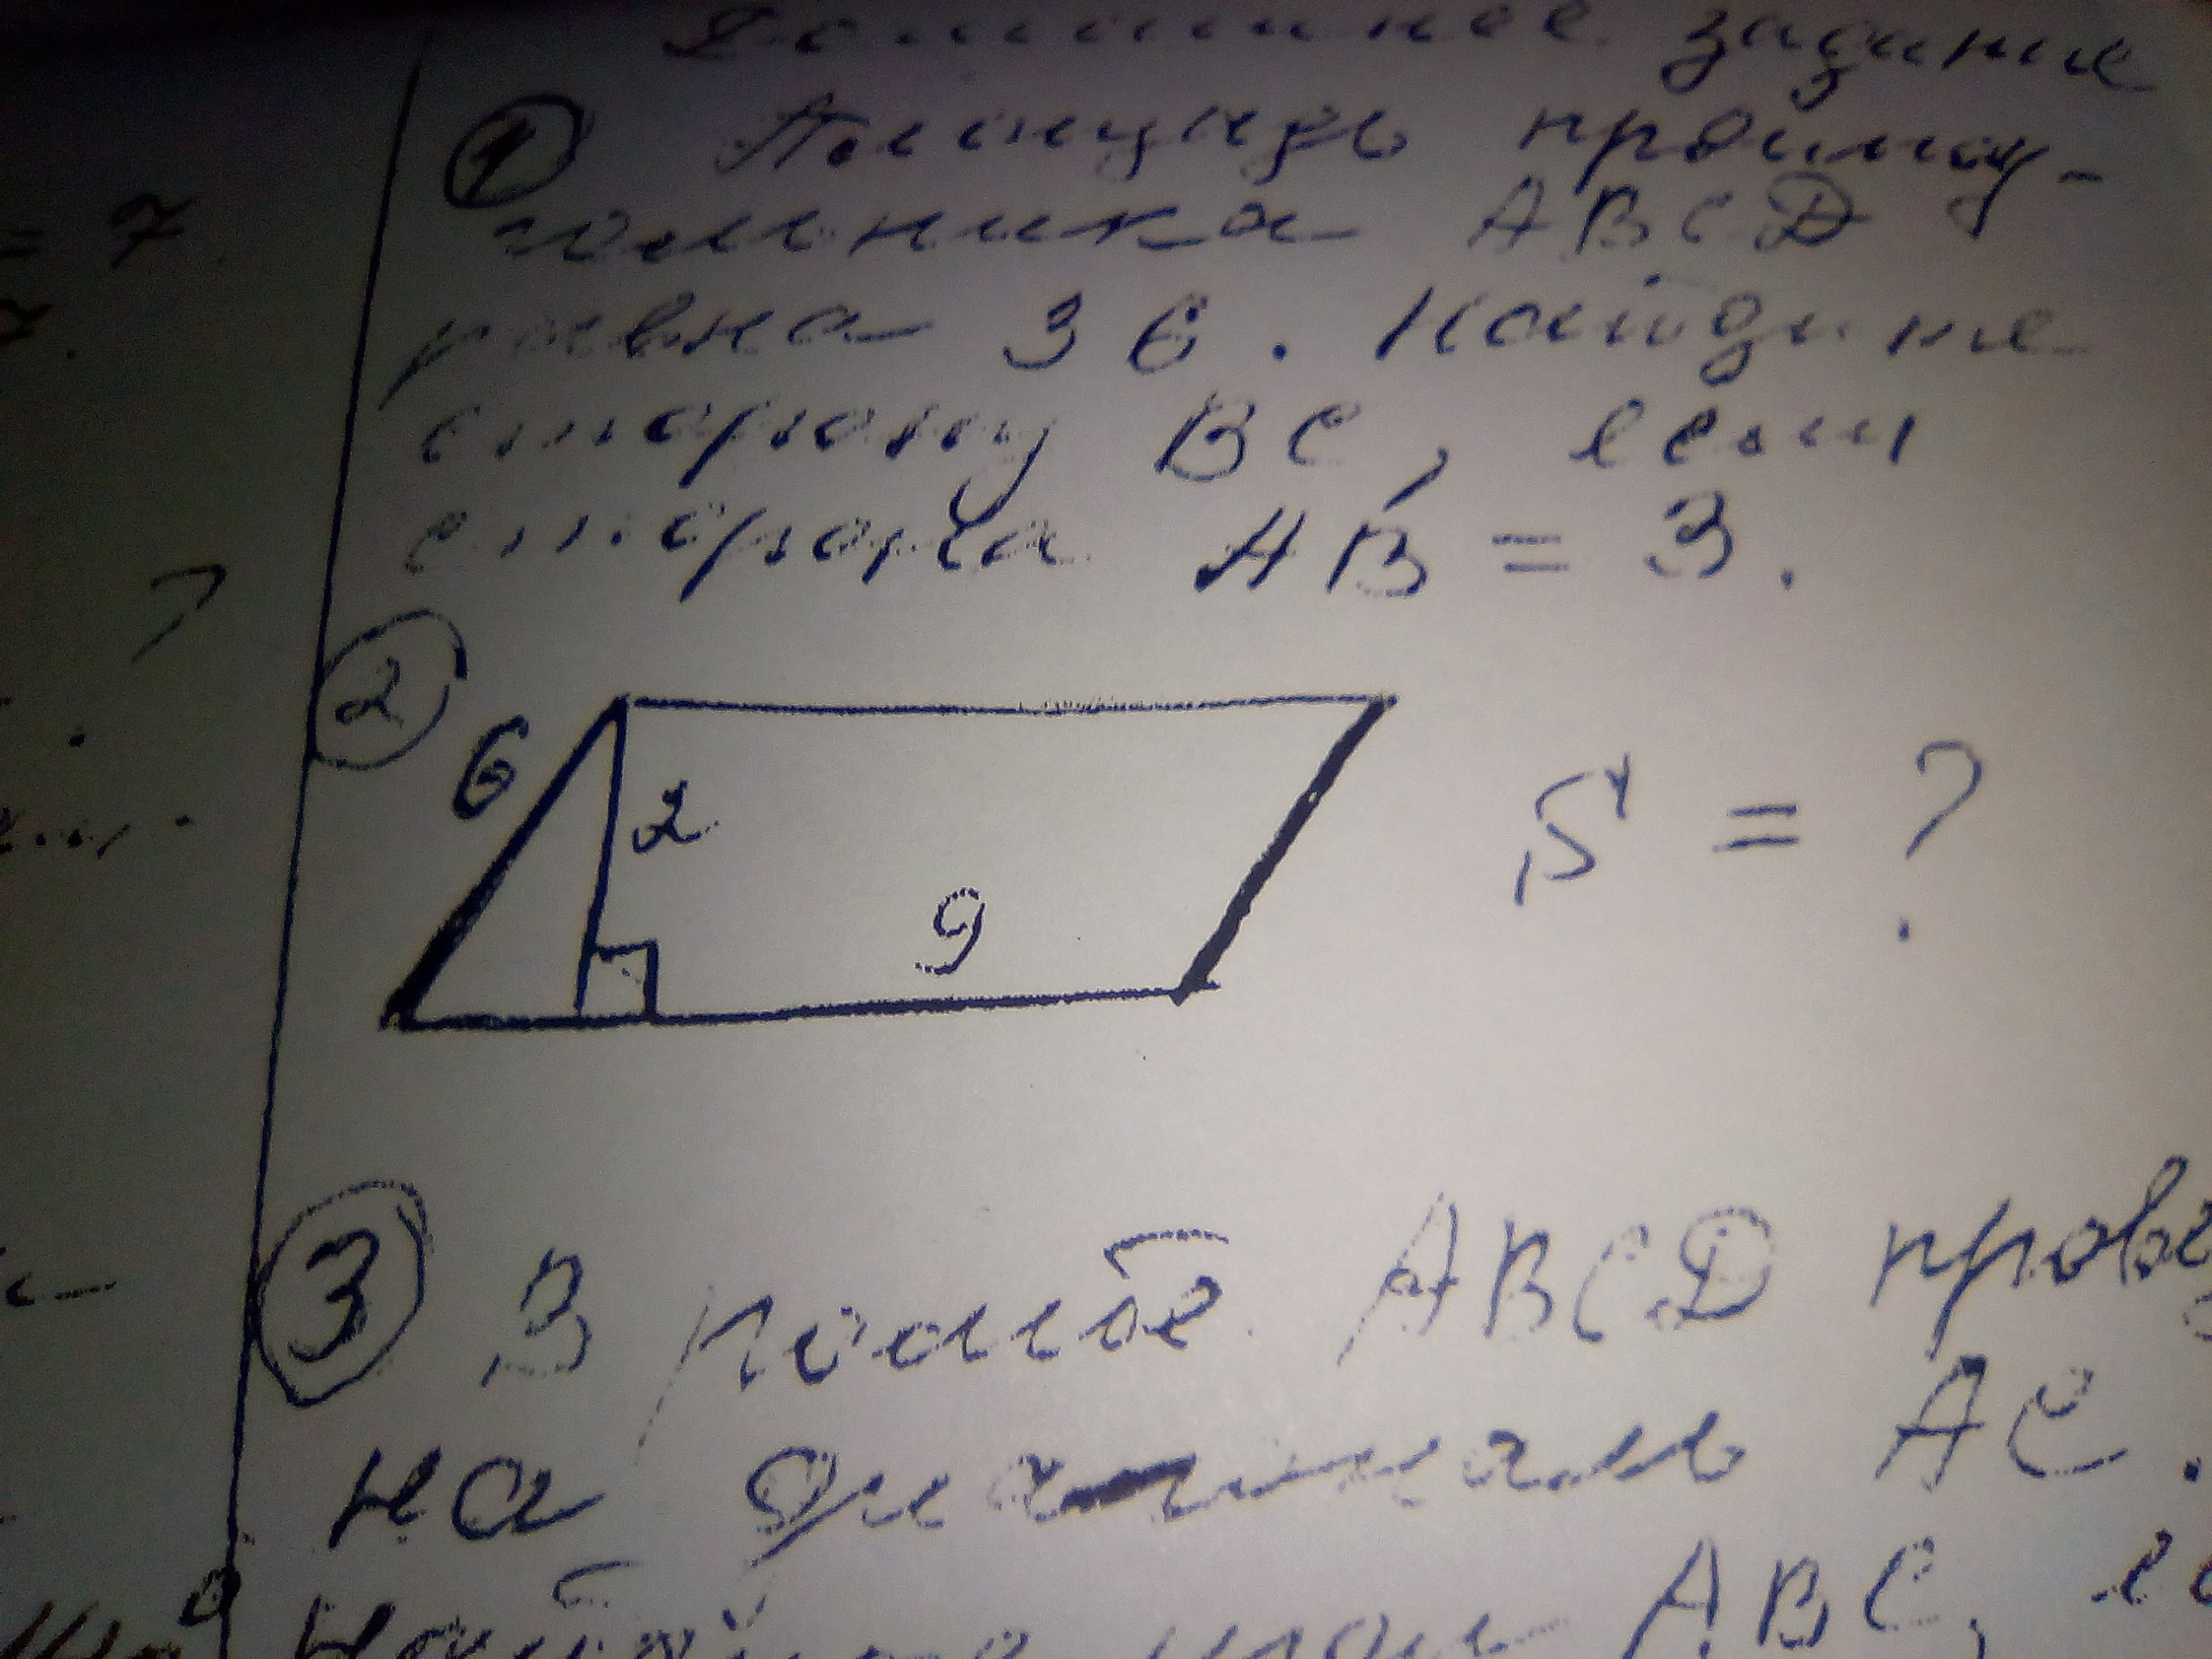 Домашнее задание
① Площадь прямоу-
гольника ABCD
равна 36. Найдите
сторону BC, если
сторона AB = 3.
②
6
2
9
S = ?
③ В ромбе ABCD прове
на диагональ AC.
Найдите угол ABC, ес
= 7
?